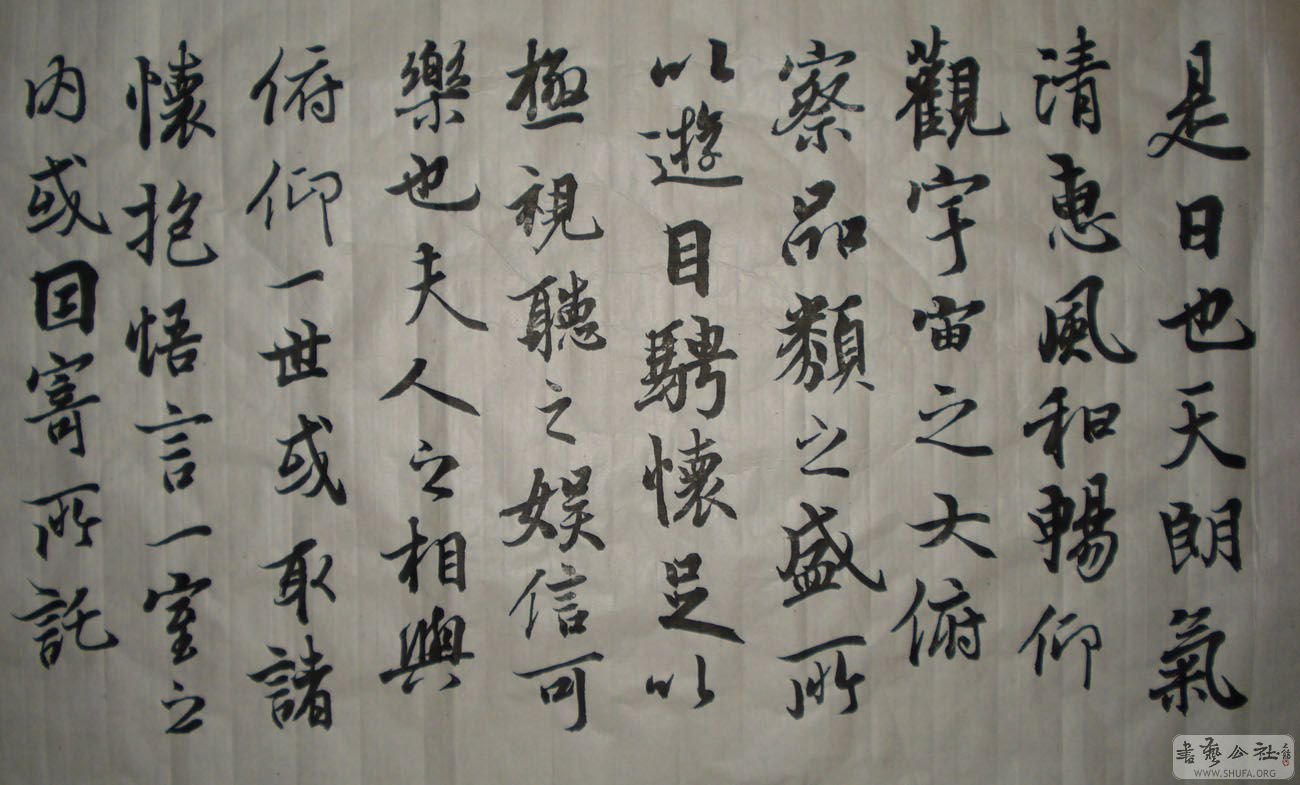 是日也天朗氣
清惠風和暢仰
觀宇宙之大俯
察品類之盛所
以遊目騁懷足以
極視聽之娛信可
樂也夫人之相與
俯仰一世或取諸
懷抱悟言一室之
內或因寄所託
書藝公社
WWW.SHUFA.ORG